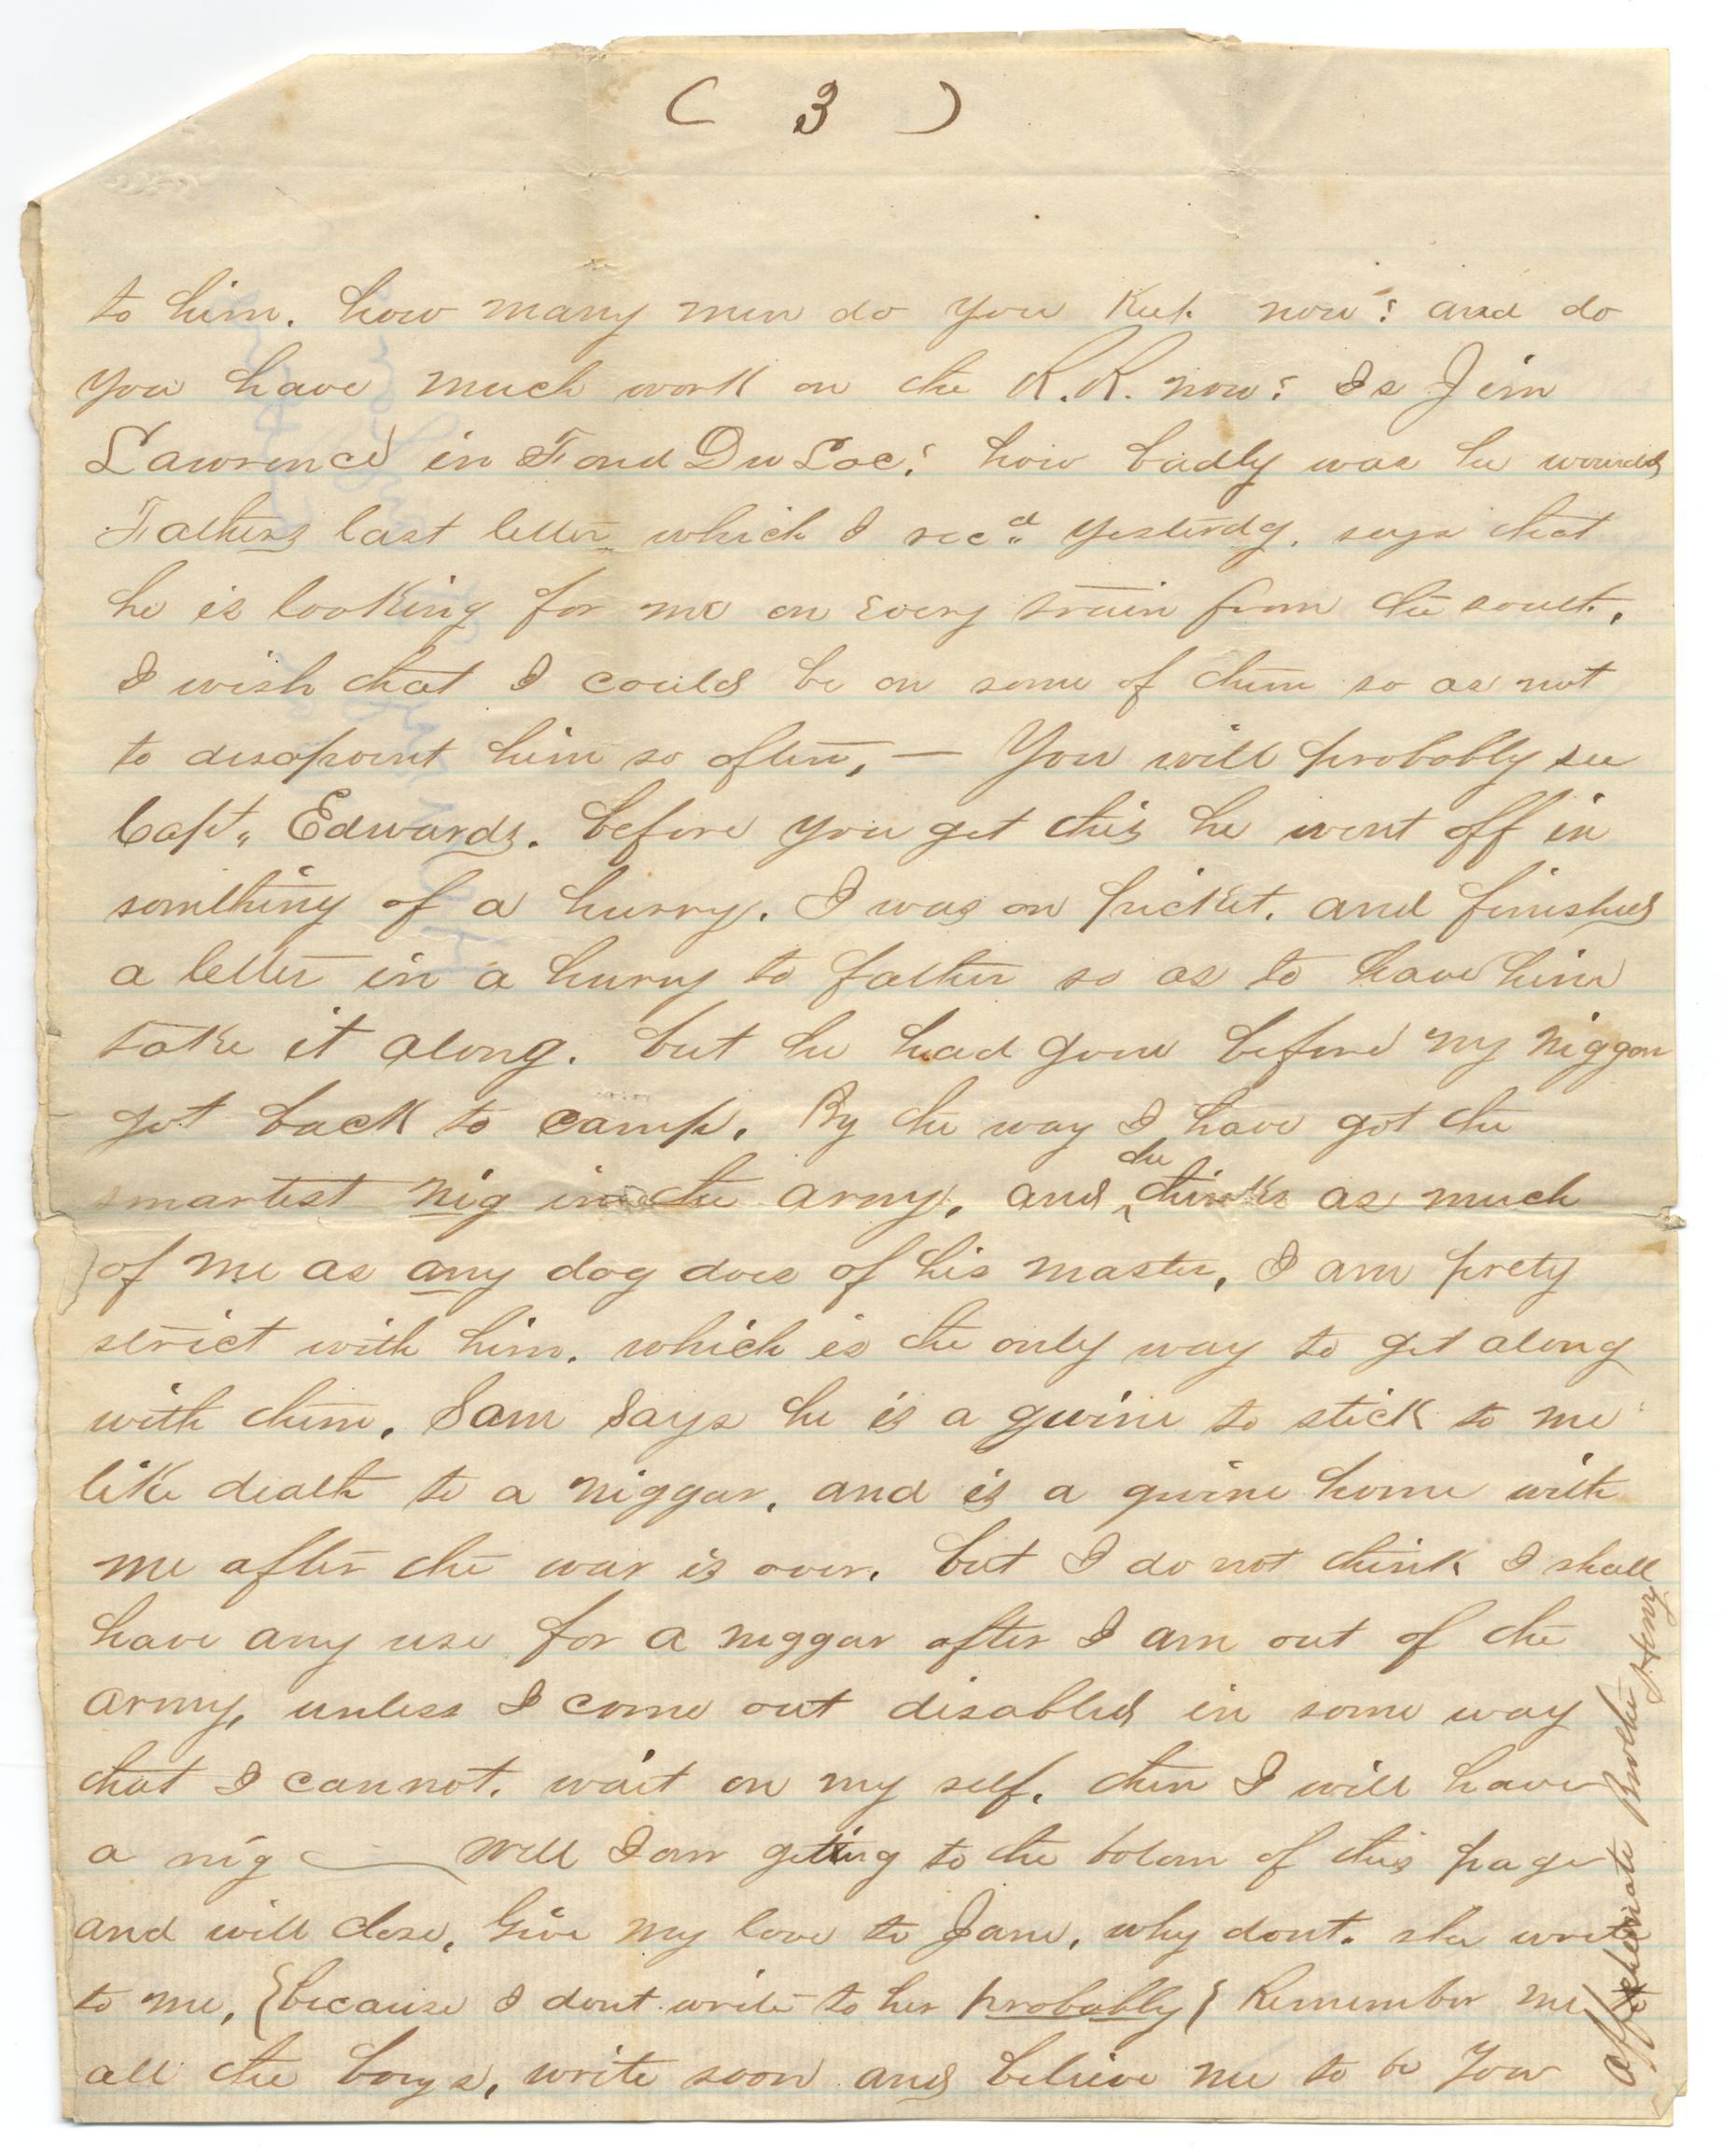 ( 3 )
to him. how many men do you keep now? and do
you have much work on the R.R. now? Is Jim
Lawrence in Fond Du Lac? how badly was he wounded
Fathers last letter which I recd yesterdy. says that
he is looking for me on every train from the south.
I wish that I could be on some of them so as not
to disapoint him so often, — You will probably see
Capt. Edwards. before you get this he went off in
something of a hurry. I was on picket. and finished
a letter in a hurry to father so as to have him
take it along. but he had gone before my niggar
got back to camp. By the way I have got the
smartest nig in the army, and he thinks as much
of me as any dog does of his master, I am prety
strict with him. which is the only way to get along
with them. Sam says he is a gwine to stick to me
like death to a niggar, and is a gwine home with
me after the war is over. but I do not think I shall
have any use for a niggar after I am out of the
army, unless I come out disabled in some way
that I cannot. wait on my self. then I will have
a nig — Well I am geting to the botom of this page
and will close, Give my love to Jane, why dont. she write
to me, {because I dont write to her probably} Remember me to
all the boys, write soon and believe me to be Your
affectionate Brother Henry